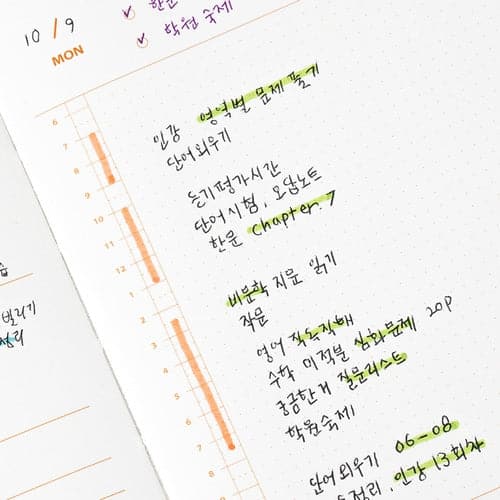 10/9
MON
한문
학원 숙제
6
7
8
9
10
11
12
1
2
3
4
5
6
7
8
인강 영역별 문제 풀기
단어 외우기
듣기평가시간
단어시험, 오답노트
한문 Chapter. 7
비문학 지문 읽기
작문
영어 직독직해
수학 미적분 심화문제 20p
궁금한거 질문리스트
학원숙제
단어 외우기 06-08
인강 13회차
빌리기